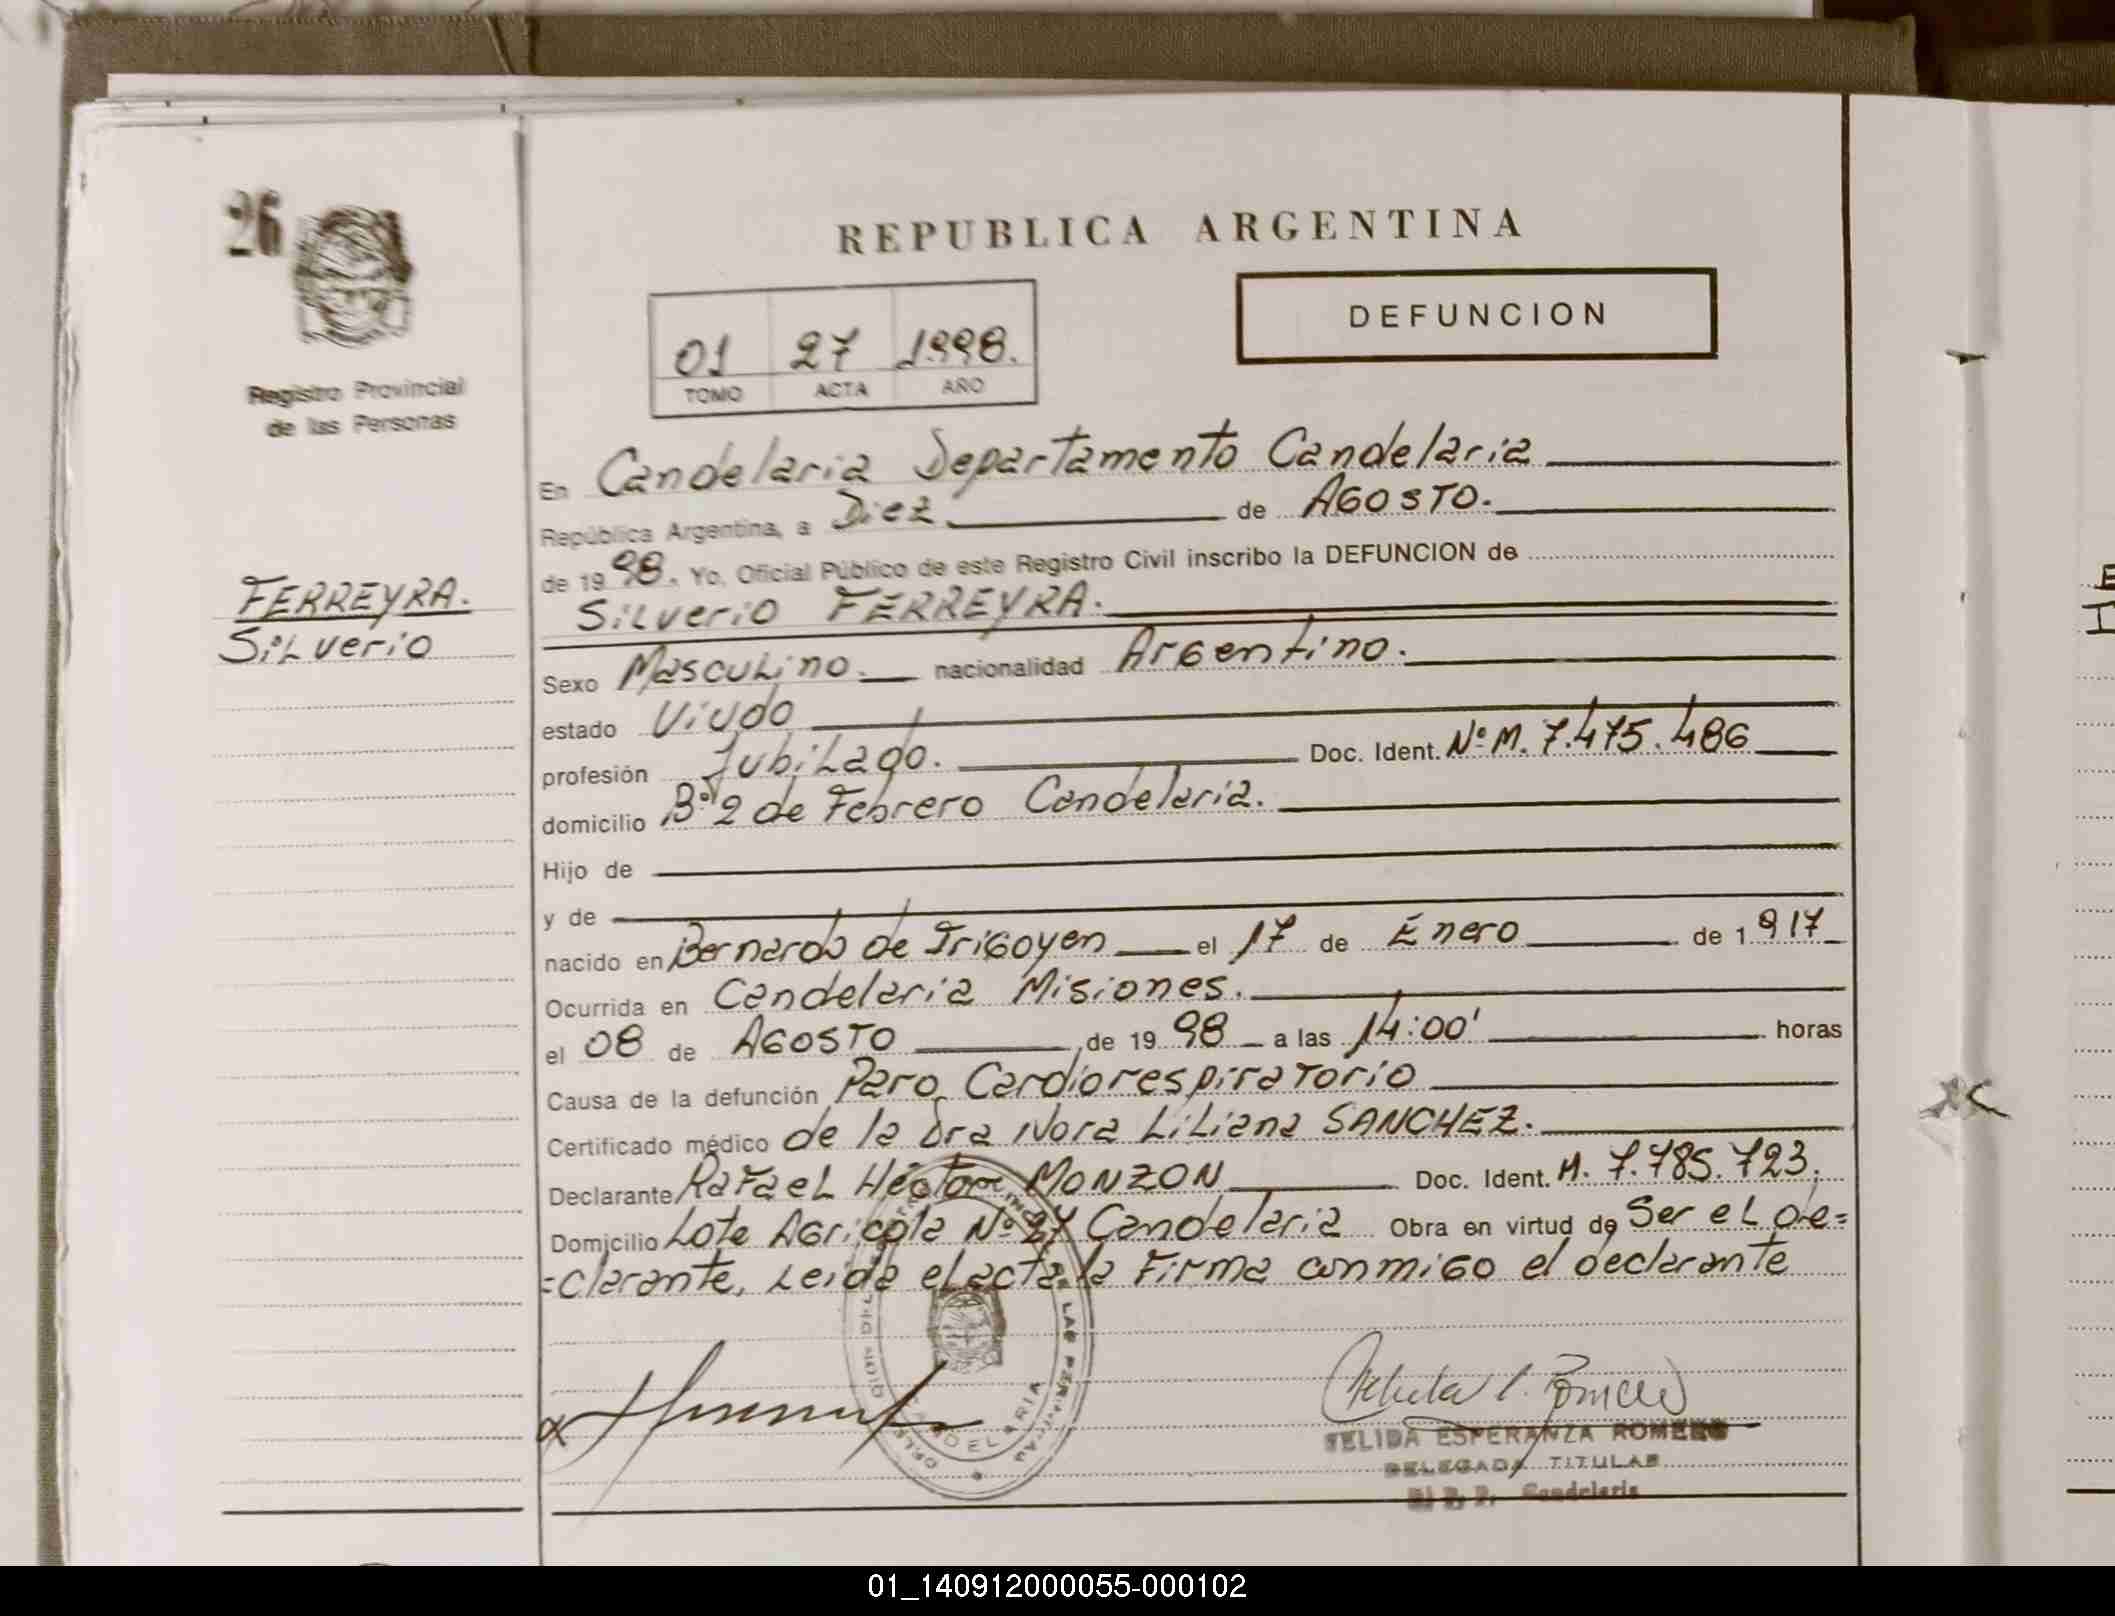 26
Registro Provincial
de las Personas
FERREYRA.
Silverio
REPUBLICA ARGENTINA
DEFUNCION
01 27 1.998.
TOMO ACTA AÑO
En Candelaria Departamento Candelaria
República Argentina, a Diez de AGOSTO.
de 19 98. Yo, Oficial Público de este Registro Civil inscribo la DEFUNCION de
Silverio FERREYRA.
Sexo Masculino. nacionalidad Argentino.
estado Viudo
profesión Jubilado. Doc. Ident. Nº M. 7.475.486
domicilio Bº 2 de Febrero Candelaria.
Hijo de
y de
nacido en Bernardo de Irigoyen el 17 de Enero de 1 917
Ocurrida en Candelaria Misiones.
el 08 de AGOSTO de 19 98 a las 14:00' horas
Causa de la defunción Paro Cardiorespiratorio
Certificado médico de la Dra Nora Liliana SANCHEZ.
Declarante Rafael Héctor MONZON Doc. Ident. M. 7.785.723.
Domicilio Lote Agricola Nº 27 Candelaria Obra en virtud de Ser el de=
=clarante, Leida el acta la Firma conmigo el declarante
CANDELARIA
ESPERANZA ROMERO
DELEGADA TITULAR
Candelaria
01_140912000055-000102